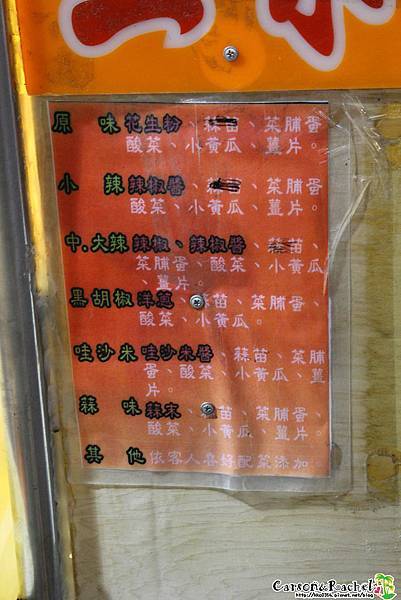 原 味 花生粉、蒜苗、菜脯蛋
酸菜、小黃瓜、薑片。
小 辣 辣椒醬、蒜苗、菜脯蛋
酸菜、小黃瓜、薑片。
中.大辣 辣椒、辣椒醬、蒜苗、
菜脯蛋、酸菜、小黃瓜
、薑片。
黑胡椒 洋蔥、蒜苗、菜脯蛋、
酸菜、小黃瓜。
哇沙米 哇沙米醬、蒜苗、菜脯
蛋、酸菜、小黃瓜、薑
片。
蒜 味 蒜末、蒜苗、菜脯蛋、
酸菜、小黃瓜、薑片。
其 他 依客人喜好配菜添加。
Carson&Rachel